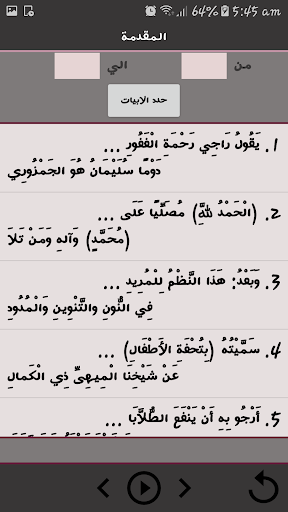 64% 5:45 am
المقدمة
من الي
حدد الابيات
1. يَقُولُ رَاجِي رَحْمَةِ الْغَفُورِ ...
دَوْمًا سُلَيْمَانُ هُوَ الجَمْزُورِي
2. (الْحَمْدُ لِلَّهِ) مُصَلِّيًا عَلَى ...
(مُحَمَّدٍ) وَآلِهِ وَمَنْ تَلاَ
3. وَبَعْدُ: هَذَا النَّظْمُ لِلْمُرِيدِ ...
فِي النُّونِ وَالتَّنْوِينِ وَالْمُدُودِ
4. سَمَّيْتُهُ (بِتُحْفَةِ الأَطْفَالِ) ...
عَنْ شَيْخِنَا الْمِيهِىِّ ذِي الْكَمالِ
5. أَرْجُو بِهِ أَنْ يَنْفَعَ الطُّلاَّبَا ...